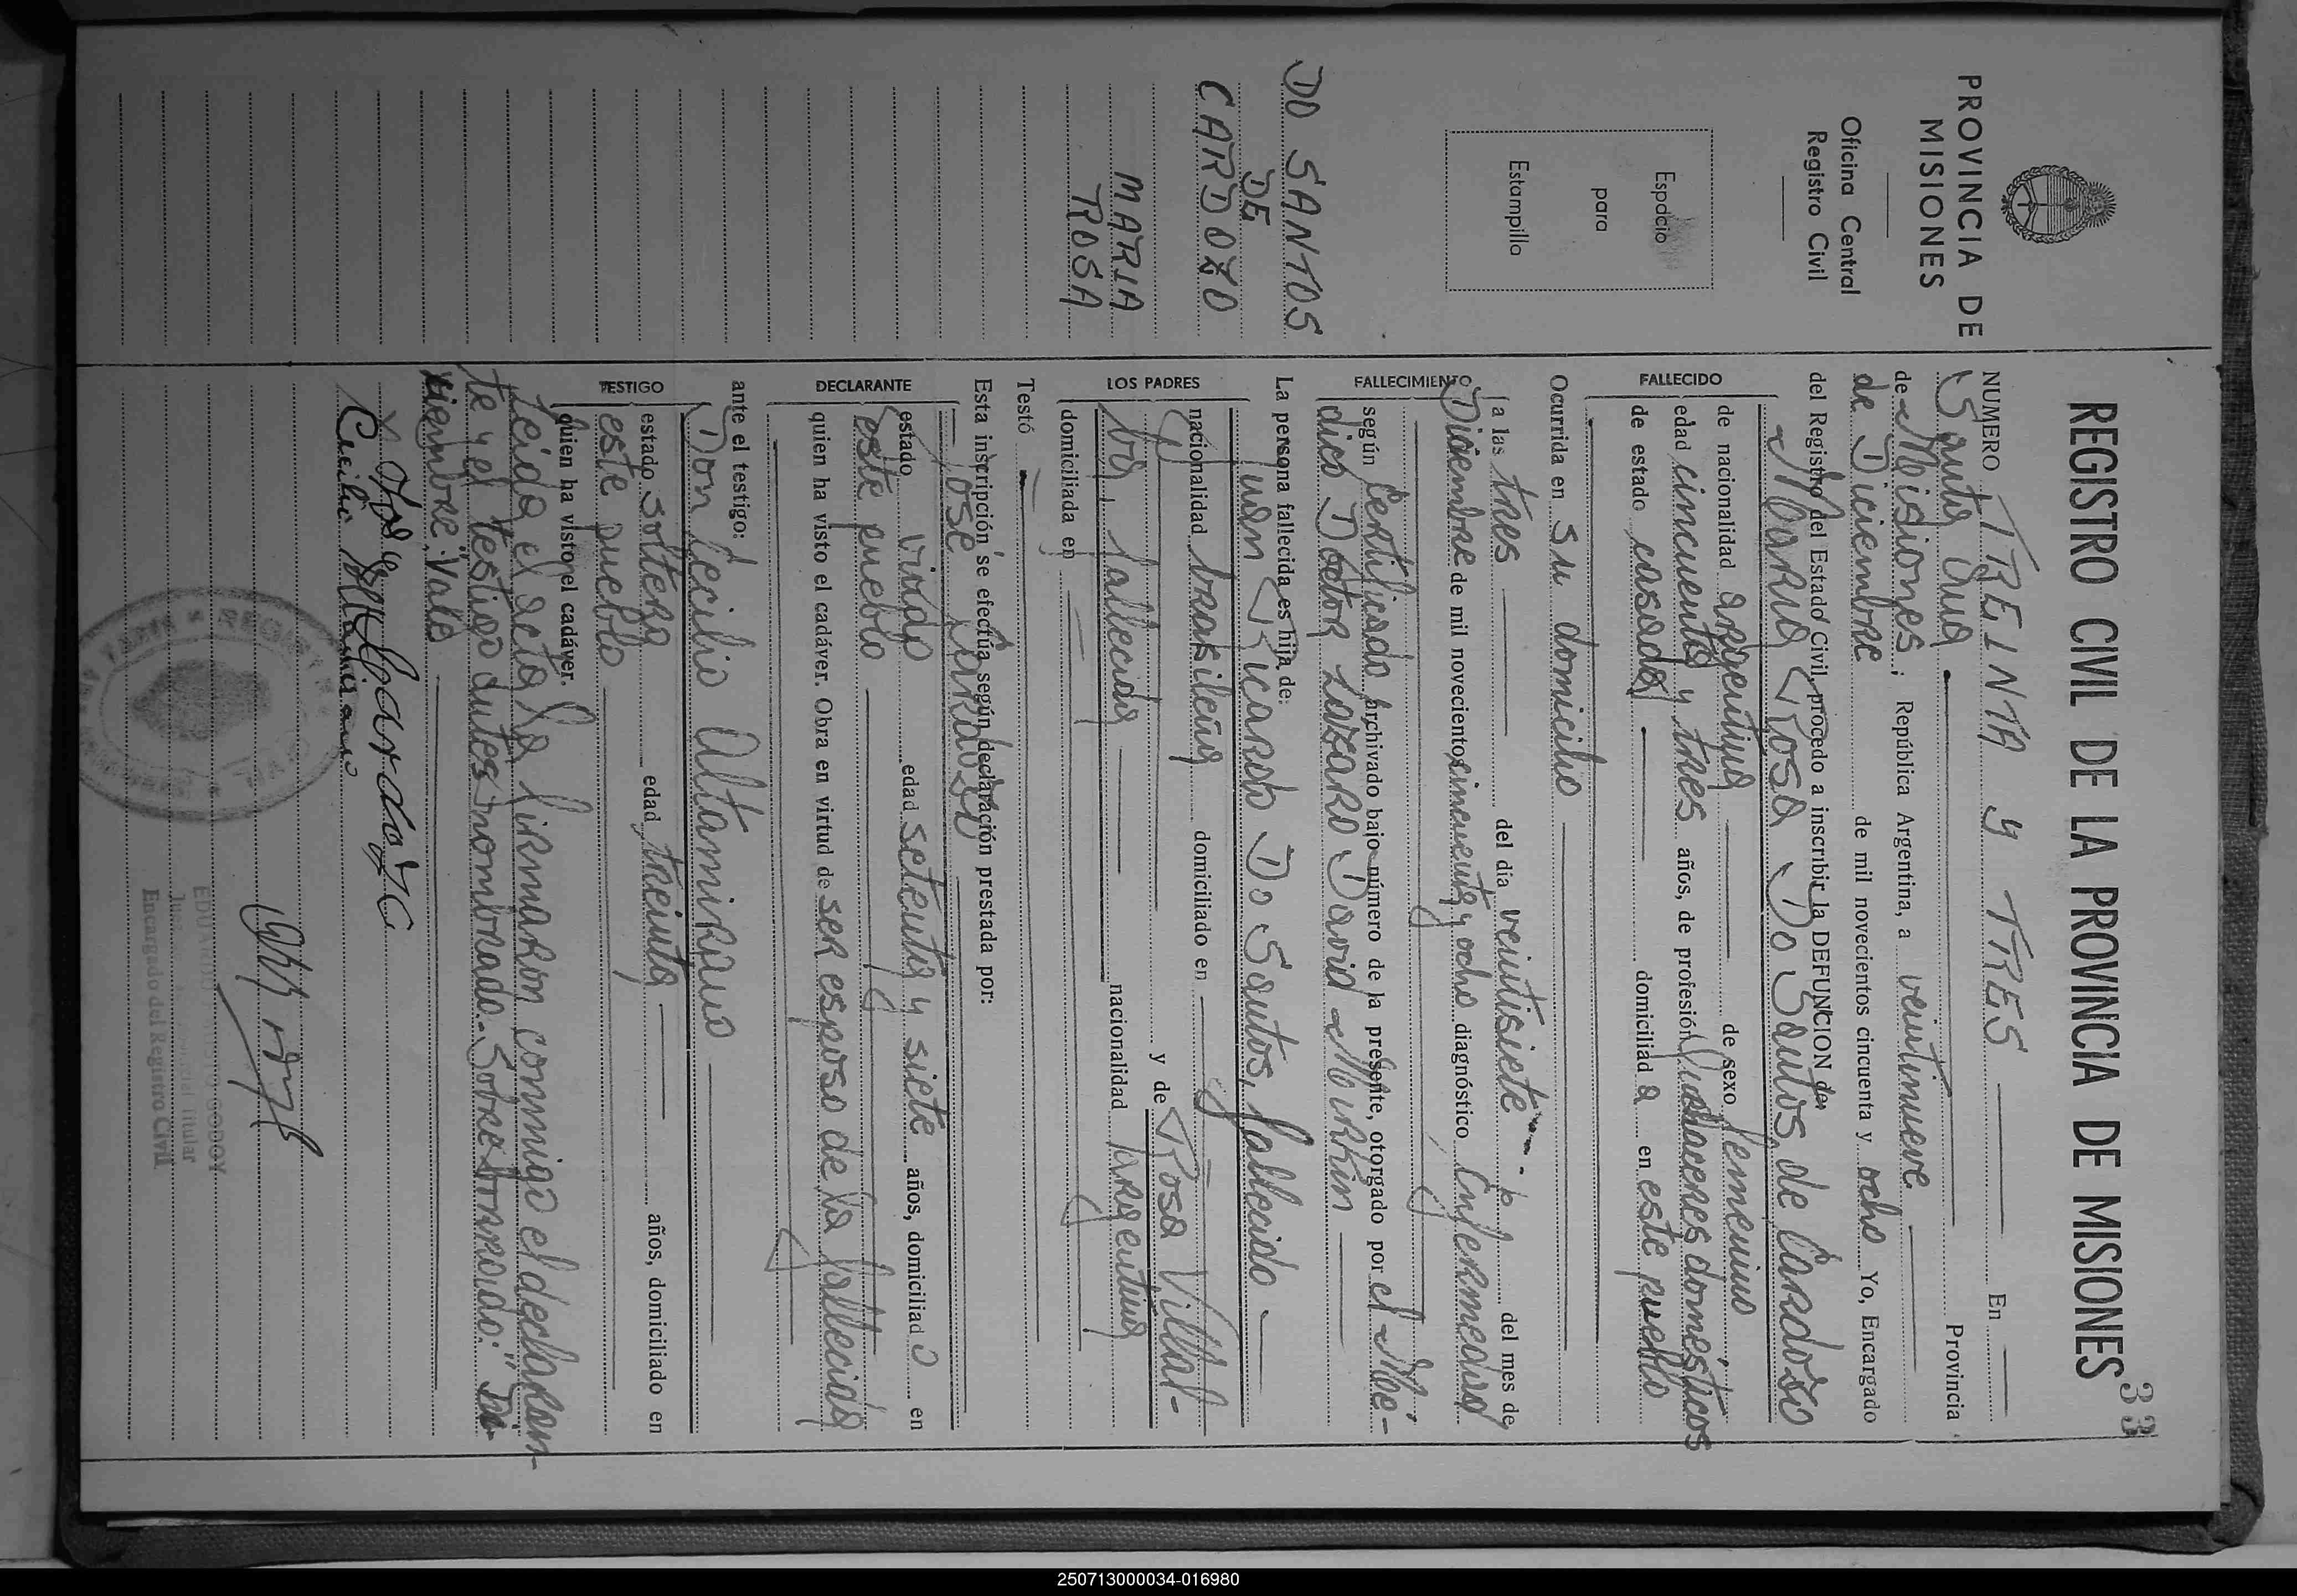 33
PROVINCIA DE
MISIONES
Oficina Central
Registro Civil
Espacio
para
Estampilla
DO SANTOS
DE
CARDOZO
MARIA
ROSA
REGISTRO CIVIL DE LA PROVINCIA DE MISIONES
NUMERO TREINTA y TRES En
Santa Ana Provincia
de Misiones; República Argentina, a veintinueve
de Diciembre de mil novecientos cincuenta y ocho Yo, Encargado
del Registro del Estado Civil, procedo a inscribir la DEFUNCION de
FALLECIDO
Maria Rosa Do Santos de Cardoso
de nacionalidad argentina de sexo femenino
edad cincuenta y tres años, de profesión Quehaceres domésticos
de estado casada domiciliada en este pueblo
Ocurrida en su domicilio
FALLECIMIENTO
a las tres del día veintisiete del mes de
Diciembre de mil novecientos cincuenta y ocho diagnóstico Enfermedad
según Certificado archivado bajo número de la presente, otorgado por el Mé-
dico Doctor Lázaro David Murkin
La persona fallecida es hija de:
LOS PADRES
Juan Ricardo Do Santos, fallecido
nacionalidad brasileña domiciliado en
y de Rosa Villal-
ba, fallecida nacionalidad argentina
domiciliada en
Testó
Esta inscripción se efectúa según declaración prestada por:
DECLARANTE
José Cardoso
estado viudo edad setenta y siete años, domiciliado en
este pueblo
quien ha visto el cadáver. Obra en virtud de ser esposo de la fallecida
ante el testigo:
TESTIGO
Don Cecilio Altamirano
estado soltero edad treinta años, domiciliado en
este pueblo
quien ha visto el cadáver.
Leida el acta la firmaron conmigo el declaran-
te y el testigo antes nombrado.- Sobre borroneado: "Di-
ciembre", Vale
Jose Cardozo
Cecilio Altamirano
EDUARDO GODOY
Titular
Encargado del Registro Civil
250713000034-016980